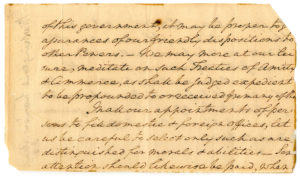 of this government, it may be proper to
assurances of our friendly dispositions to
other Powers. — We may more at our lei
sure, meditate on such Treaties of Amity
& Commerce, as shall be judged expedient
to be propounded to or received from any of them
In all our appointments of per
sons to fill domestic & foreign offices, let
us be careful to select only such as are
distinguished for morals & abilities. — Some
attention should likewise be paid, when